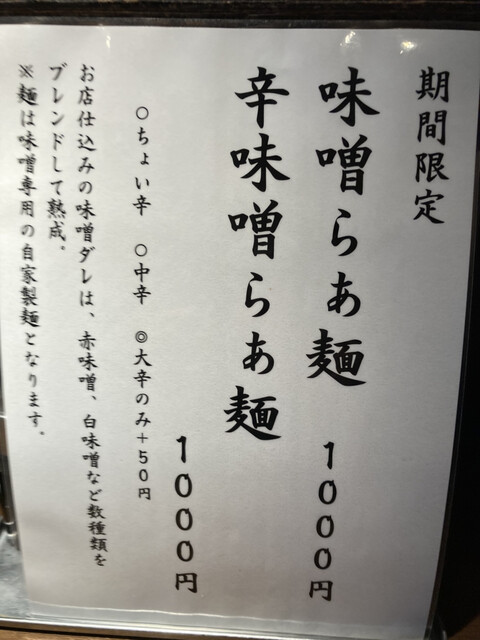 期間限定
味噌らぁ麺 1000円
辛味噌らぁ麺 1000円
○ちょい辛 ○中辛 ◎大辛のみ+50円
お店仕込みの味噌ダレは、赤味噌、白味噌など数種類を
ブレンドして熟成。
※麺は味噌専用の自家製麺となります。